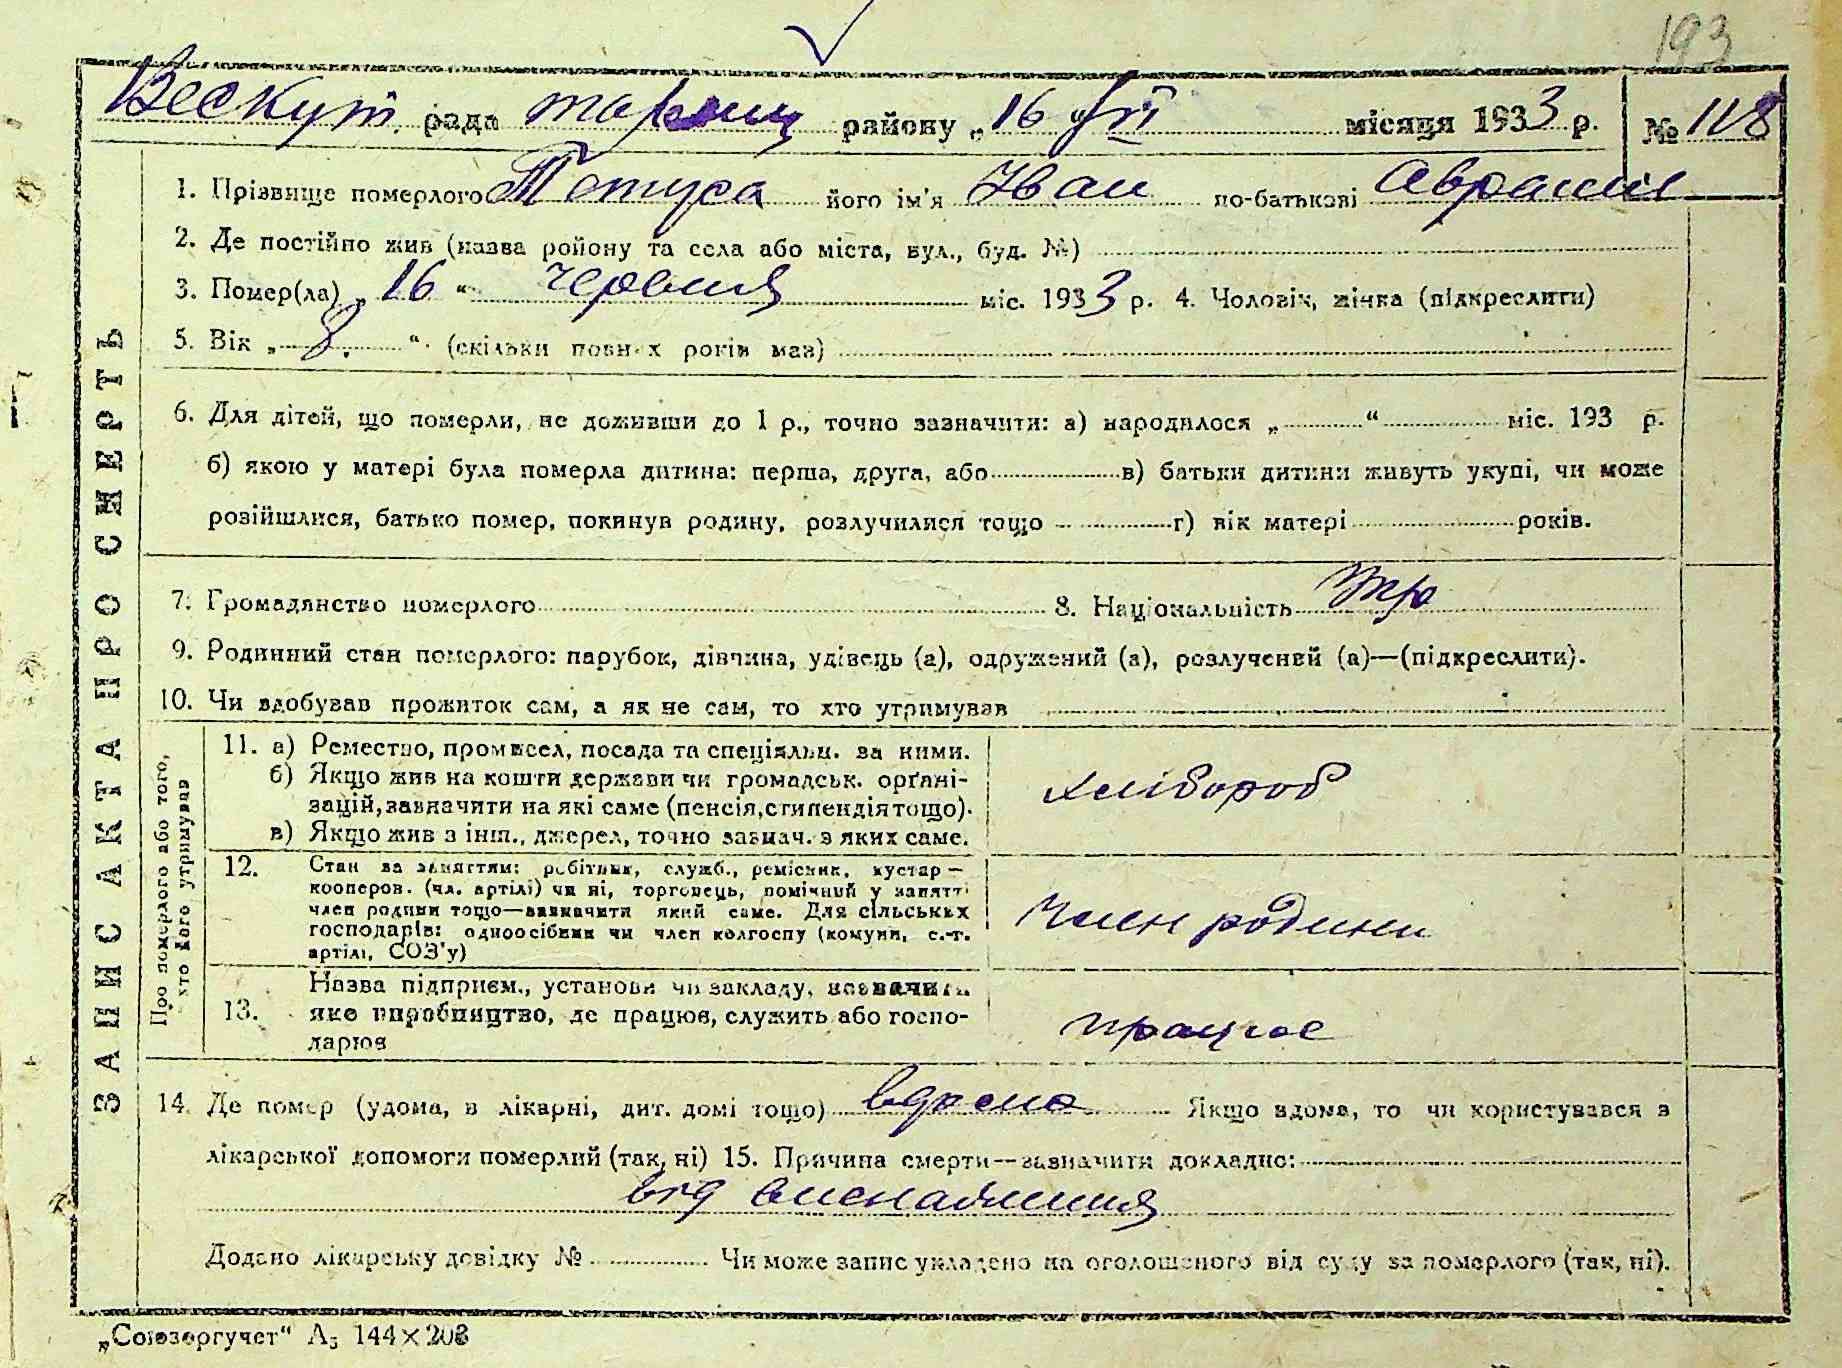 193
Вескут. рада район у „16“ VI місяця 1933 р. № 118
1. Прізвище померлого його ім'я Іван по-батькові Аврамів
2. Де постійно жив (назва району та села або міста, вул., буд. №)
3. Помер(ла) „16“ червня міс. 1933 р. 4. Чоловік, жінка (підкреслити)
5. Вік „8.“ (скільки повних років мав)
6. Для дітей, що померли, не доживши до 1 р., точно зазначити: а) народилося „ “ міс. 193 р.
б) якою у матері була померла дитина: перша, друга, або в) батьки дитини живуть укупі, чи може
розійшлися, батько помер, покинув родину, розлучилися тощо г) вік матері років.
7. Громадянство померлого 8. Національність Укр
9. Родинний стан померлого: парубок, дівчина, удівець (а), одружений (а), розлучений (а)—(підкреслити).
10. Чи здобував прожиток сам, а як не сам, то хто утримував
ЗАПИС АКТА ПРО СМЕРТЬ
Про померлого або того,
хто його утримував
11. а) Ремество, промисел, посада та спеціяльн. за ними.
б) Якщо жив на кошти держави чи громадськ. орґані-
зацій, зазначити на які саме (пенсія, стипендія тощо).
в) Якщо жив з інш., джерел, точно зазнач. з яких саме.
хлібороб
12. Стан за заняттям: робітник, служб., ремісник, кустар—
кооперов. (чл. артілі) чи ні, торговець, помічний у занятті
член родини тощо—зазначити який саме. Для сільських
господарів: одноосібник чи член колгоспу (комуни, с.-г.
артілі, СОЗ'у)
член родини
13. Назва підприєм., установи чи закладу, зазначити
яке виробництво, де працює, служить або госпо-
дарює
працює
14. Де помер (удома, в лікарні, дит. домі тощо) вдома Якщо вдома, то чи користувався з
лікарської допомоги померлий (так, ні) 15. Причина смерти—зазначити докладно:
від виснаження
Додано лікарську довідку № Чи може запис укладено на оголошеного від суду за померлого (так, ні).
„Союзоргучет“ А5 144×203